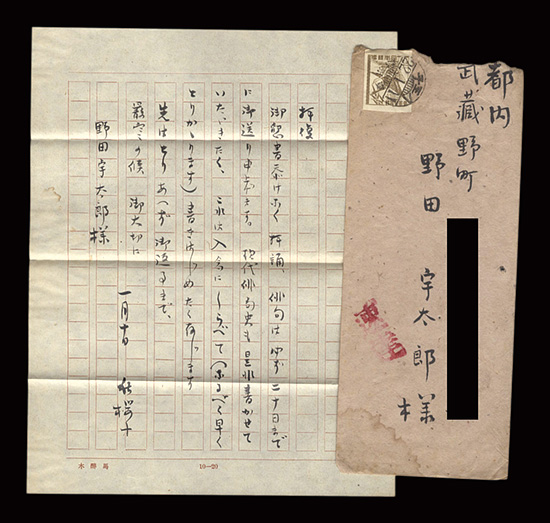 拝復
御懇書忝けなく拝誦、俳句は必ず二十日まで
に御送り申上ます。現代俳句史も是非書かせて
いたゞきたく、これは入念にしらべて(なるべく早く
とりかゝります)書きはじめたく存じます
先はとりあへず御返事まで、
厳寒の候 御大切に
一月十日 秋櫻子
野田宇太郎様
10—20
都内
武蔵野町
野田宇太郎様